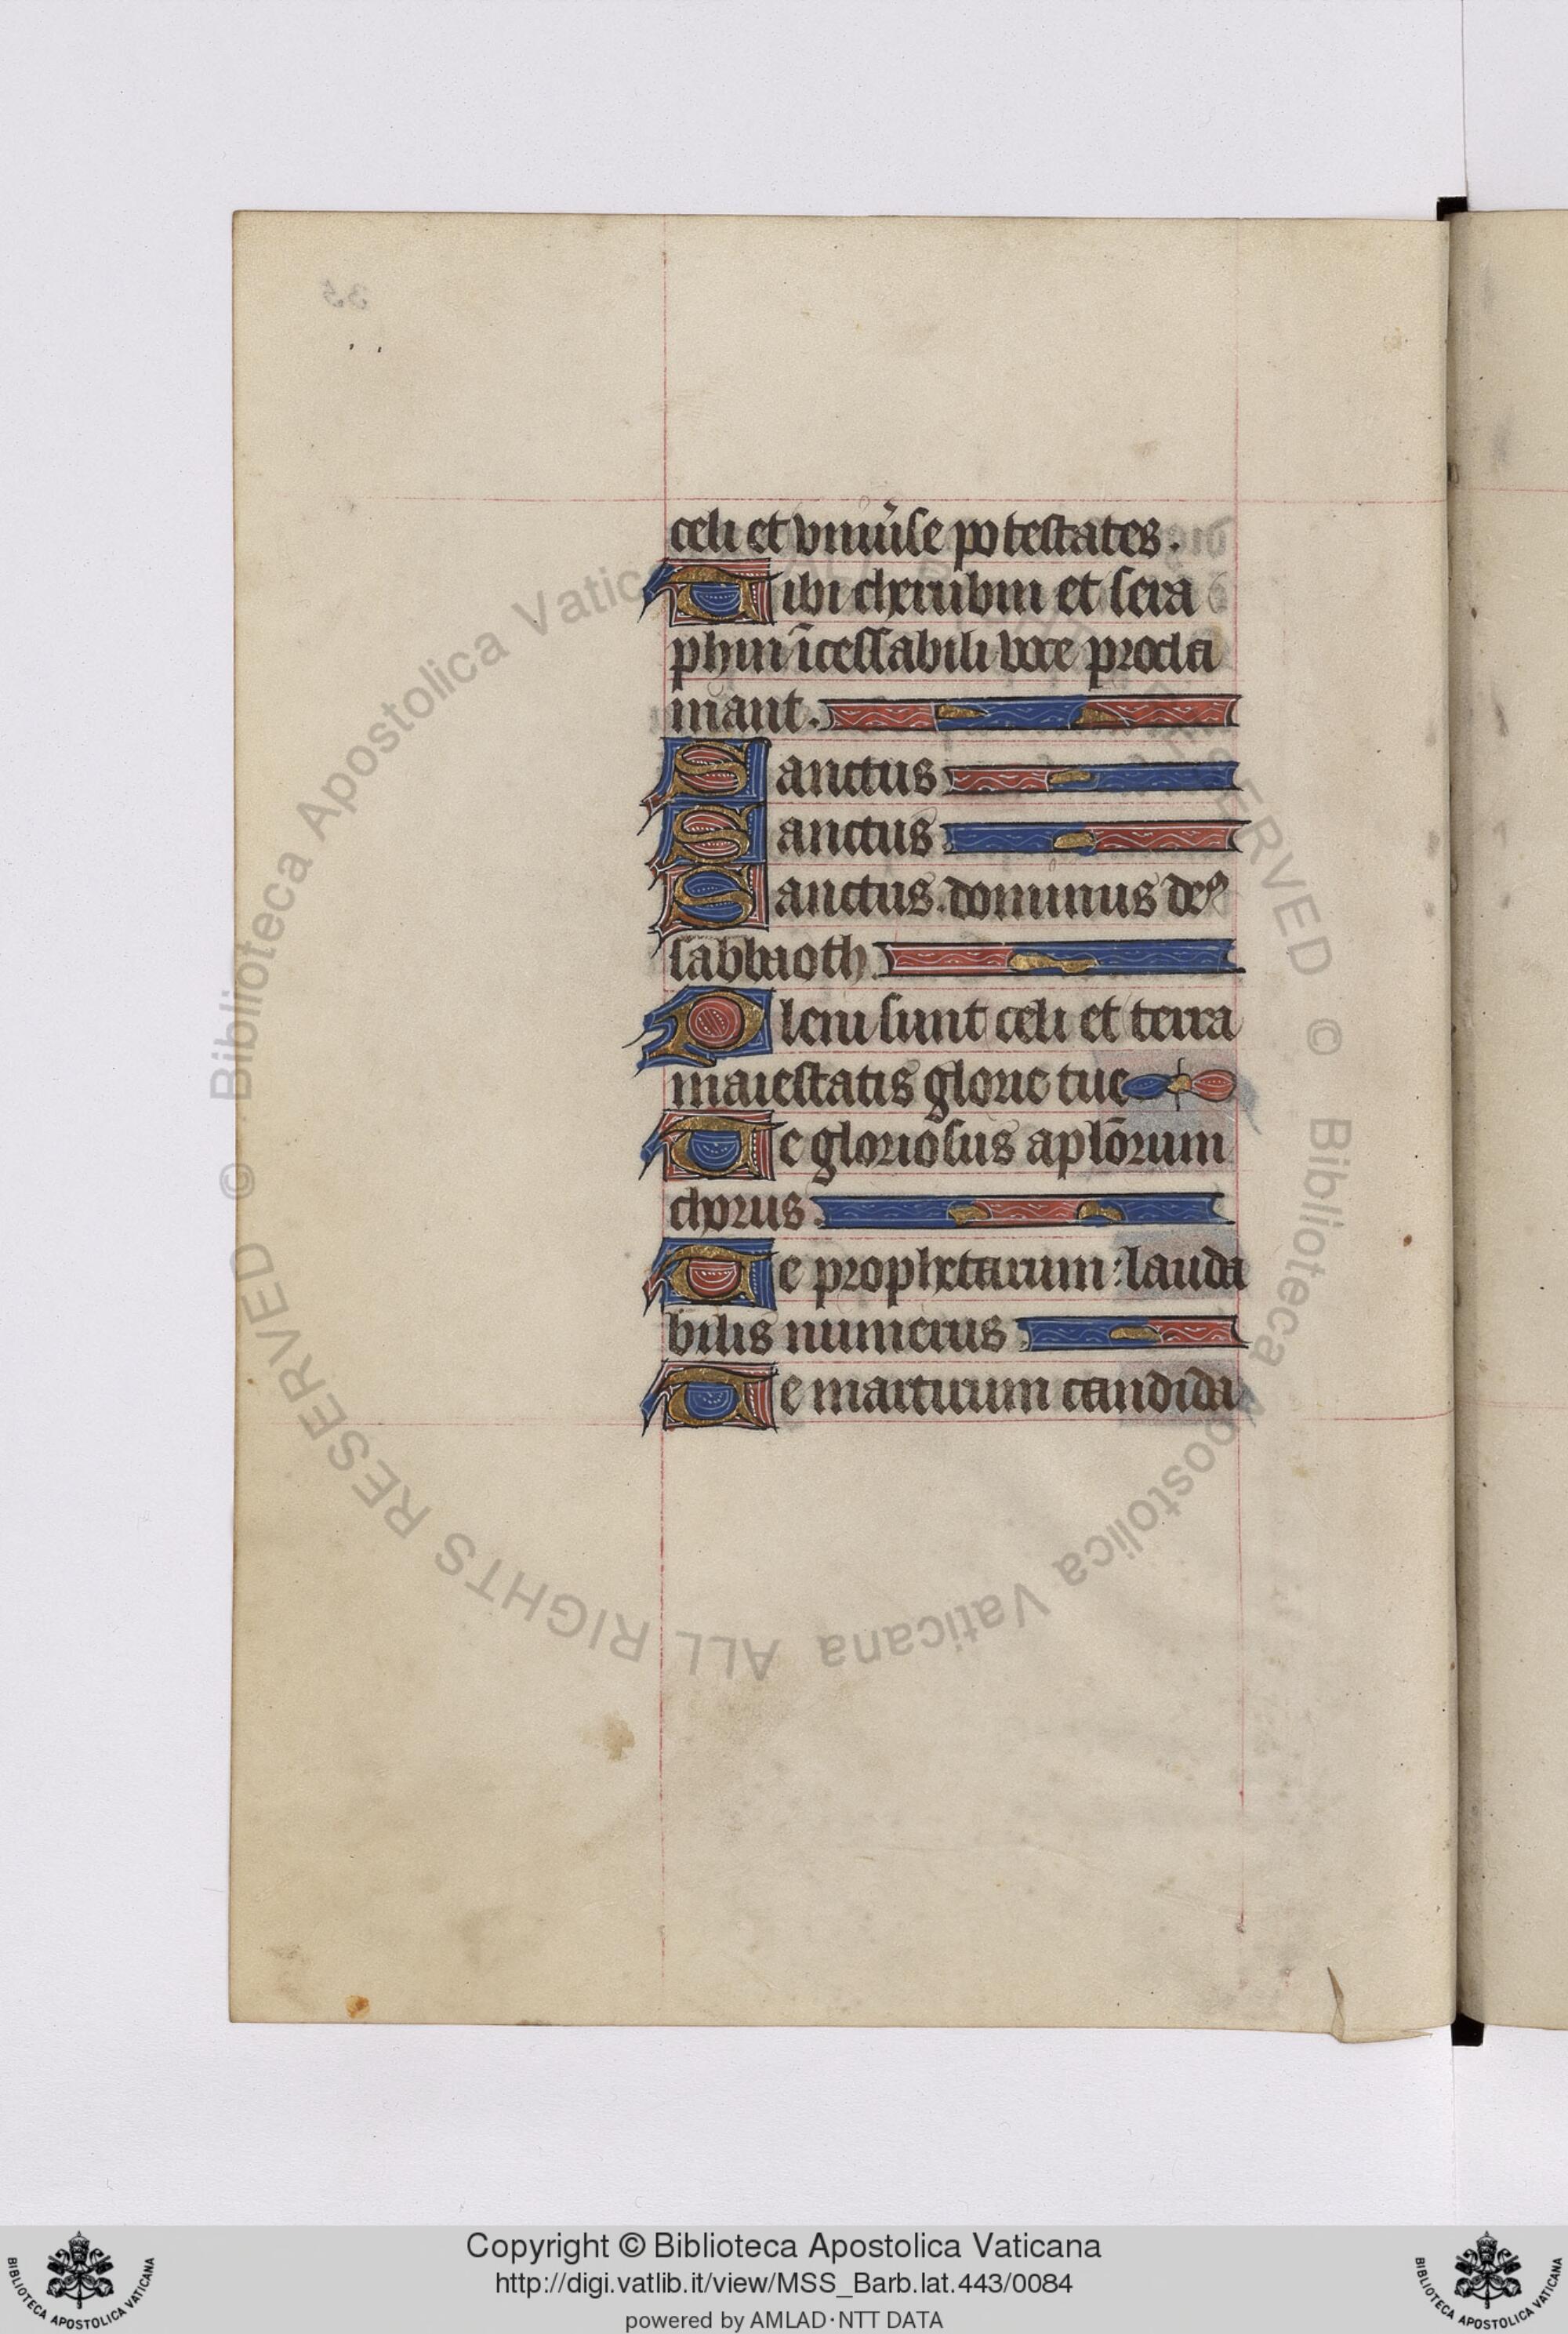 celi et vniu̾se potestates.
Tibi cherubin et sera
phin īcessabili voce procla
mant.
Sanctus
Sanctus
Sanctus. dominus deꝰ
sabbaoth
Pleni sunt celi et terra
maiestatis glorie tue
Te gloriosus aplōrum
chorus
Te prophetarum: lauda
bilis numerus
Te martirum candida
© Biblioteca Apostolica Vaticana ALL RIGHTS RESERVED © Biblioteca Apostolica Vaticana ALL RIGHTS RESERVED
Copyright © Biblioteca Apostolica Vaticana
http://digi.vatlib.it/view/MSS_Barb.lat.443/0084
powered by AMLAD·NTT DATA
BIBLIOTECA APOSTOLICA VATICANA
BIBLIOTECA APOSTOLICA VATICANA